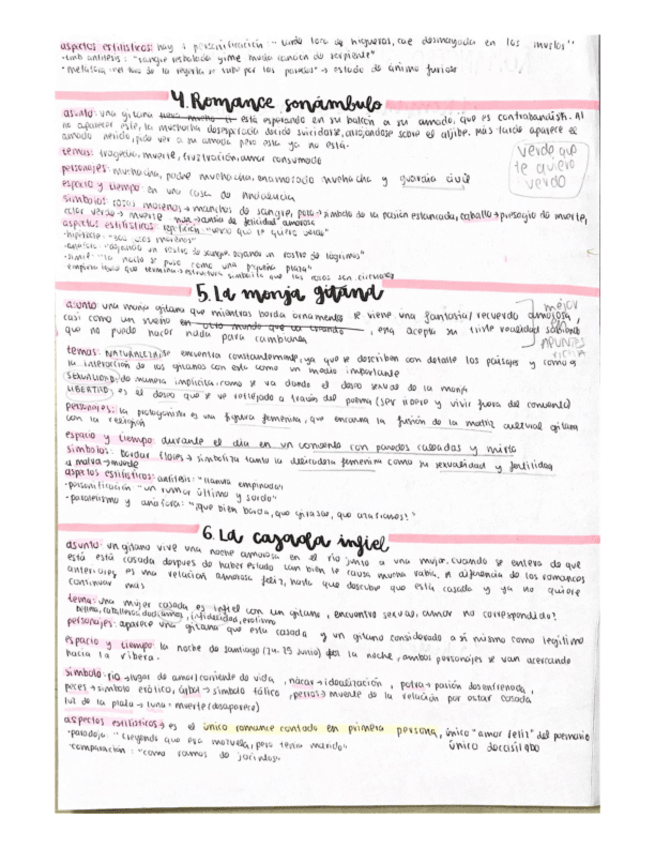 aspectos estilísticos: hay + personificación: " tarde loca de higueras, cae desmayada en los muslos"
-tmb antítesis: "sangre resbalada gime muda canción de serpiente"
4. Romance sonámbulo
asunto: una gitana está esperando en su balcón a su amado, que es contrabandista. Al
no aparecer este, la muchacha desesperada decide suicidarse, arrojándose sobre el aljibe. Más tarde aparece el
amado herido, pide ver a su amada pero esta ya no está.
temas: tragedia, muerte, frustración, amor consumado
verde que
te quiero
verde
personajes: muchacha, padre muchacha, enamorado muchacha y guardia civil
espacio y tiempo: en una casa de Andalucía
símbolos: rosas morenas → manchas de sangre, pozo → símbolo de la pasión estancada, caballo → presagio de muerte,
color verde → muerte → ansia de felicidad amorosa
aspectos estilísticos: repetición: "verde que te quiero verde"
-anáfora: "dejando un rastro de sangre, dejando un rastro de lágrimas"
-símil: "la noche se puso como una pequeña plaza"
5. La monja gitana
asunto una monja gitana que mientras borda ornamentos se viene una fantasía/ recuerdo amorosa,
casi como un sueño en otro mundo que , ella acepta su triste realidad sabiendo
que no puede hacer nada para cambiarla
mejor
en
APUNTES
temas: NATURALEZA, se encuentra constantemente, ya que se describen con detalle los paisajes y como es
la interacción de los gitanos con esta como un medio importante
SEXUALIDAD, de manera implícita, como se va dando el deseo sexual de la monja
LIBERTAD, es el deseo que se ve reflejado a través del poema (ser libre y vivir fuera del convento)
personajes: la protagonista es una figura femenina, que encarna la fusión de la matriz cultural gitana
con la religión
espacio y tiempo: durante el día en un convento con paredes calzadas y mirto
símbolos: bordar flores → simboliza tanto la delicadeza femenina como su sexualidad y fertilidad
a malva → muerte
aspectos estilísticos: antítesis: "llanura empinada"
-personificación: "un rumor último y sordo"
-paralelismo y anáfora: "¡que bien borda, que girasol, que azafranes!"
6. La casada infiel
asunto: un gitano vive una noche amorosa en el río junto a una mujer. cuando se entera de que
está está casada después de haber estado tan bien le causa mucha rabia, a diferencia de los romances
anteriores es una relación amorosa feliz, hasta que descubre que está casada y ya no quiere
continuar más
tema: una mujer casada es infiel con un gitano, encuentro sexual, amor no correspondido?
personajes: aparece una gitana que está casada y un gitano considerado a si mismo como legítimo
espacio y tiempo: la noche de Santiago (24, 25 junio) por la noche, ambos personajes se van acercando
hacia la ribera.
símbolo: río → lugar de amor/corriente de vida , nácar → idealización , potra → pasión desenfrenada,
peces → símbolo erótico, árbol → símbolo fálico , perros → muerte de la relación por estar casada
luz de la plata → luna → muerte (desaparece)
aspectos estilísticos → es el único romance contado en primera persona, único "amor feliz" del poemario
único decasílabo
-paradoja: "creyendo que era mozuela, pero tenía marido"
-comparación: "como ramos de jacintos"